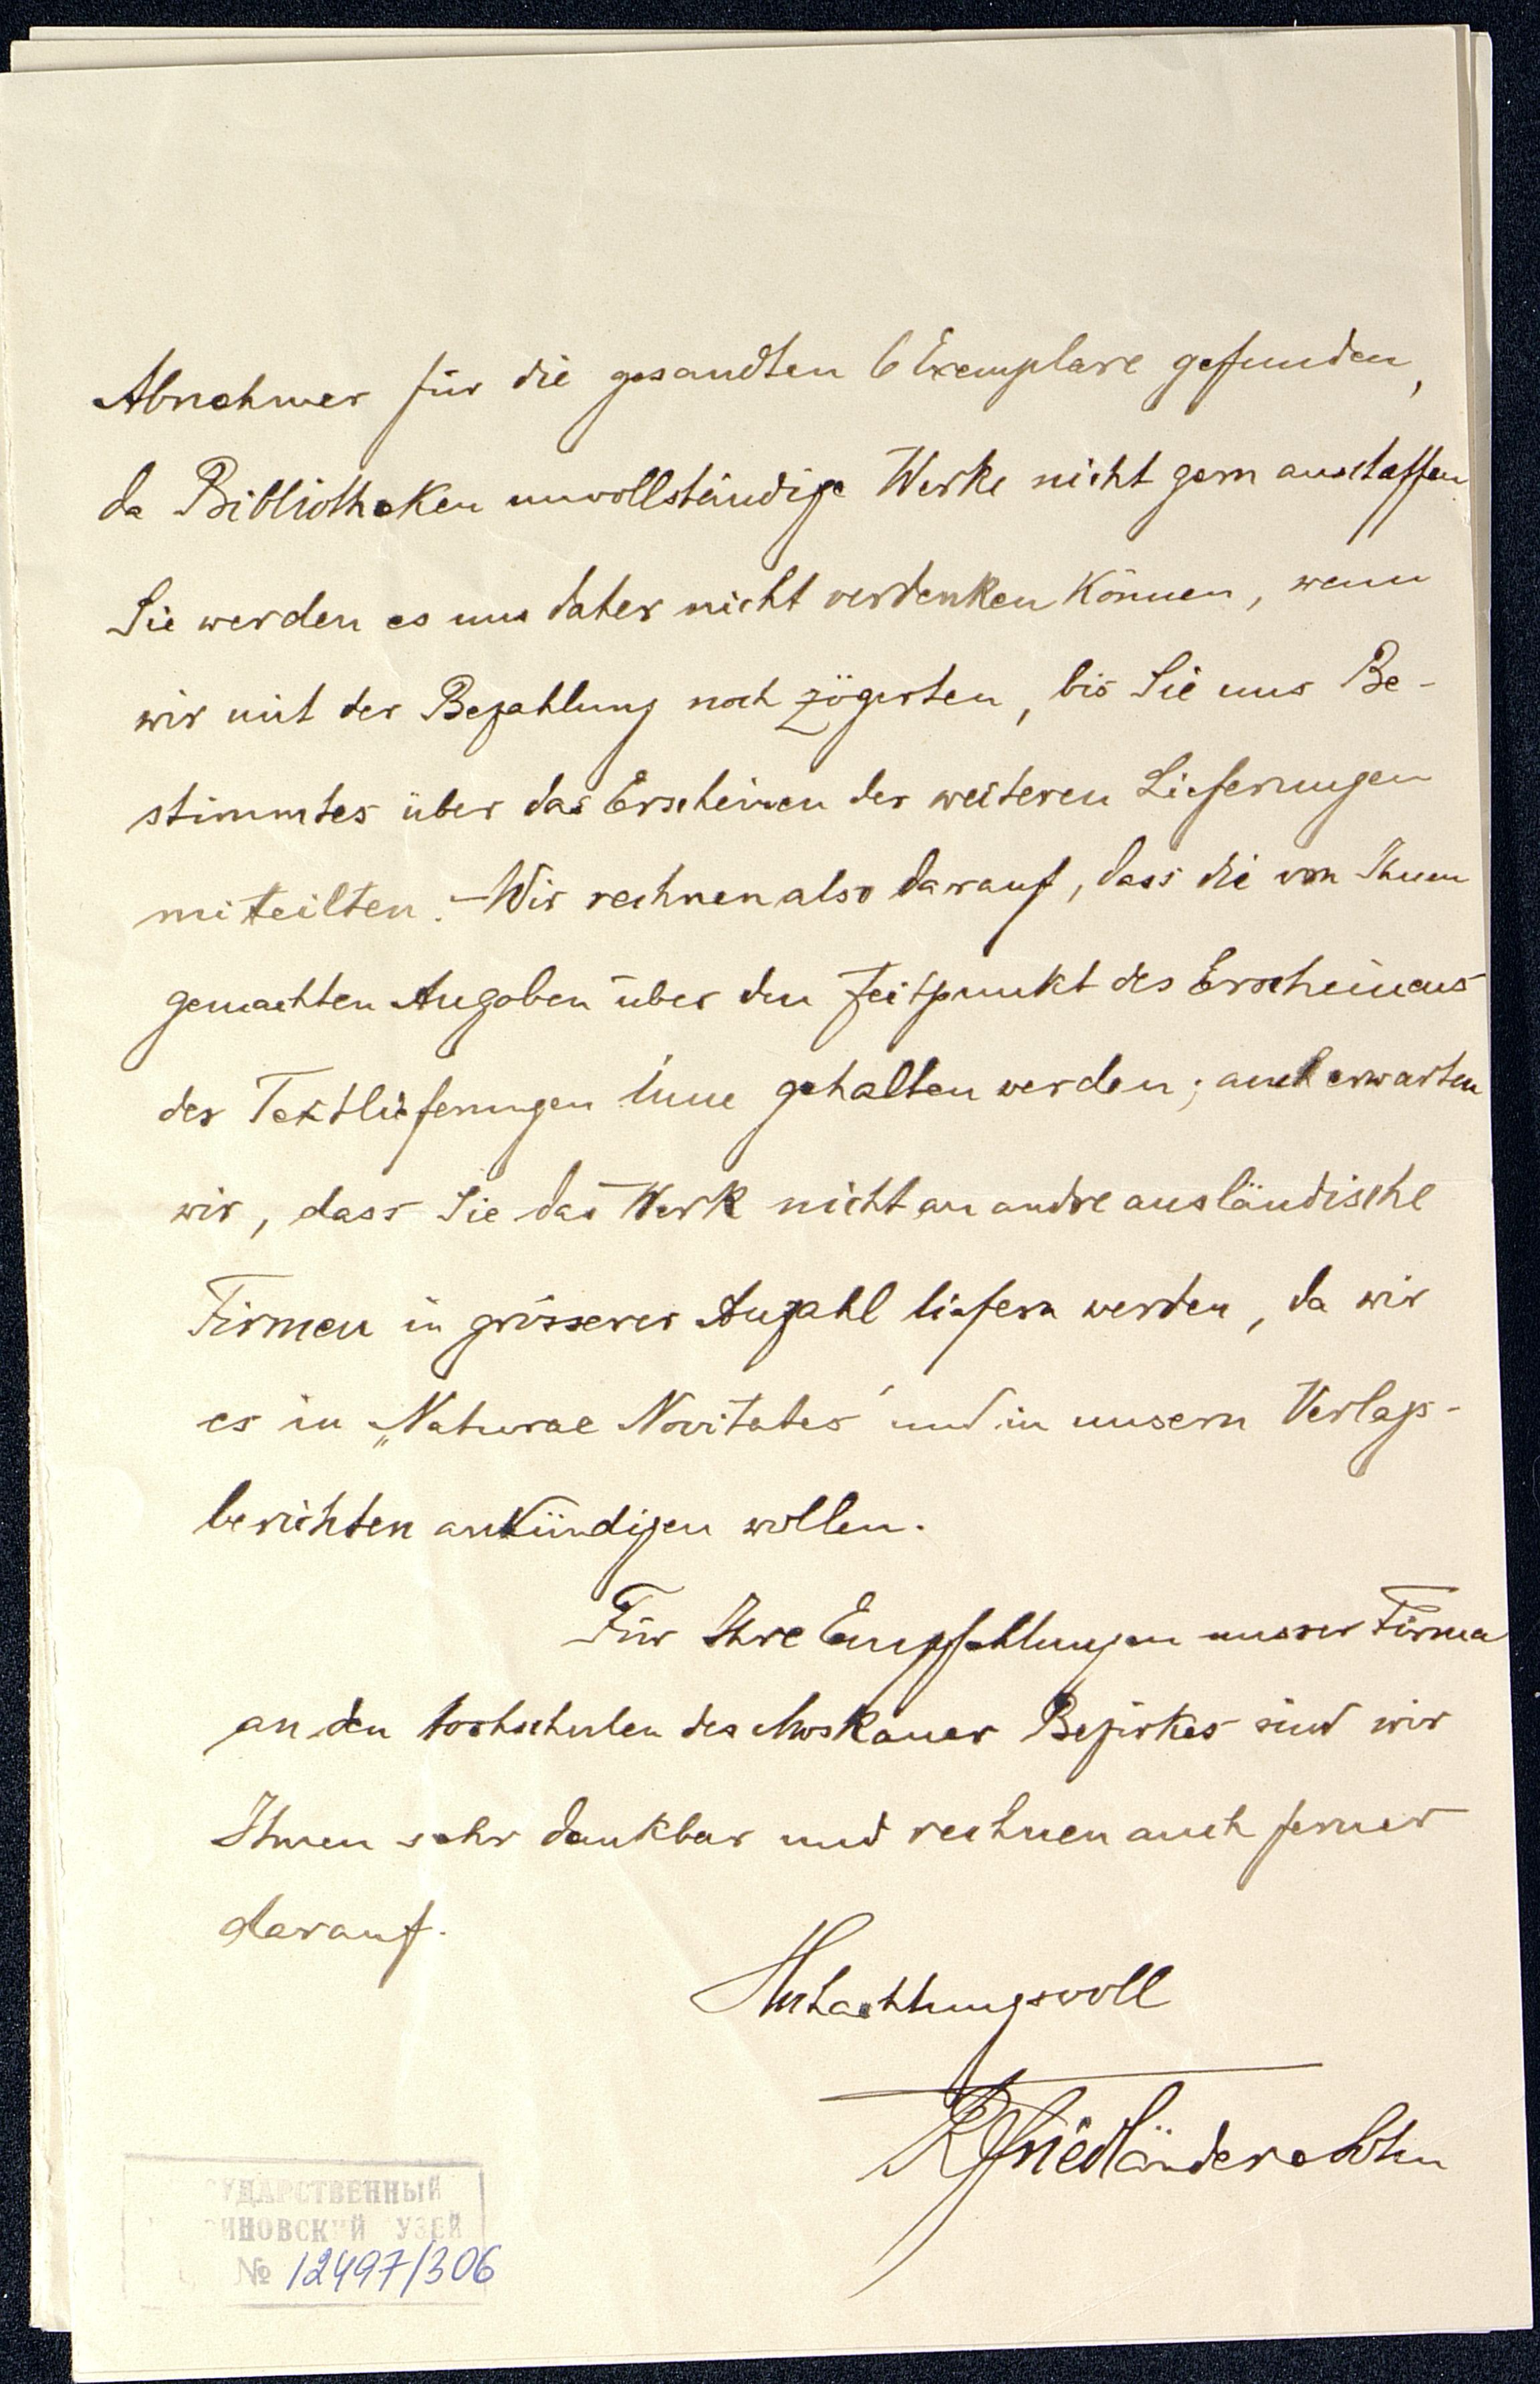 Abnehmer für die gesandten 6 Exemplare gefunden,
da Bibliotheken unvollständige Werke nicht gern anschaffen
Sie werden es uns daher nicht verdenken können, wenn
wir mit der Bezahlung noch zögerten, bis Sie uns Be-
stimmtes über das Erscheinen der weiteren Lieferungen
mitteilten. – Wir rechnen also darauf, dass die von Ihnen
gemachten Angaben über den Zeitpunkt des Erscheinens
der Textlieferungen inne gehalten werden; auch erwarten
wir, dass Sie das Werk nicht an andre ausländische
Firmen in grösserer Anzahl liefern werden, da wir
es in „Naturae Novitates" und in unsern Verlags-
berichten ankündigen wollen.
Für Ihre Empfehlungen unsrer Firma
an den Hochschulen des Moskauer Bezirkes sind wir
Ihnen sehr dankbar und rechnen auch ferner
darauf.
Hochachtungsvoll
R Friedländer & Sohn
УДАРСТВЕННЫЙ
ИНОВСКИЙ УЗЕЙ
№ 12497/306